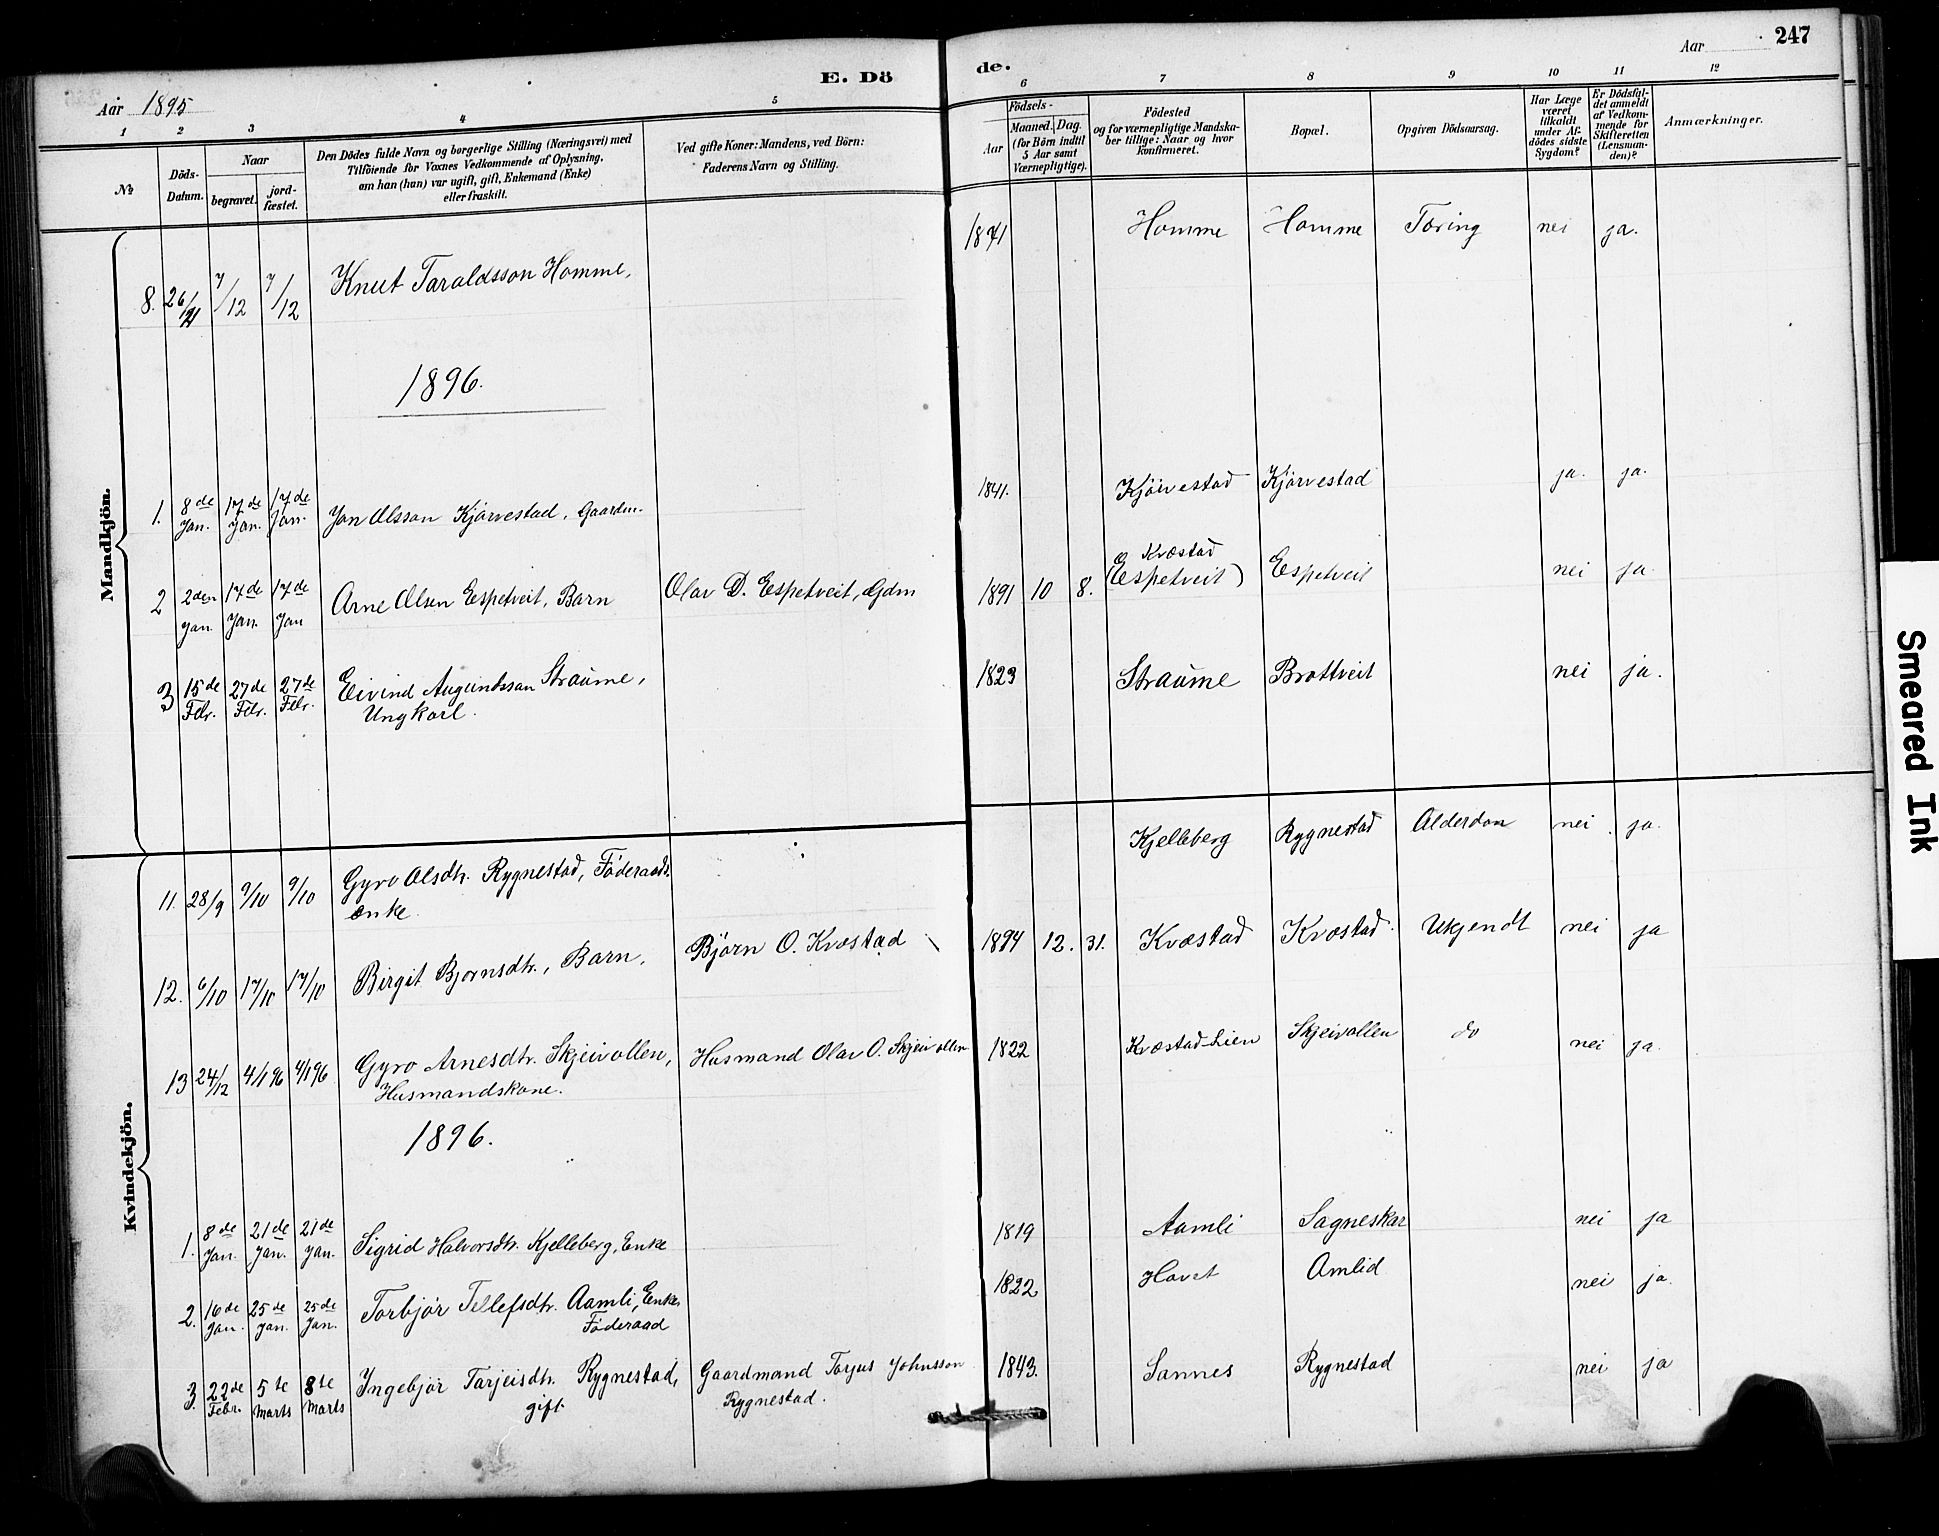 247
Aar
E. Dö de.
Aar 1895
1 2 3 4 5 6 7 8 9 10 11 12
No
Döds-Datum.
Naar
begravet.
jord-fæstet.
Den Dödes fulde Navn og borgerlige Stilling (Næringsvei) med
Tilföiende for Voxnes Vedkommende af Oplysning,
om han (hun) var ugift, gift, Enkemand (Enke)
eller fraskilt.
Ved gifte Koner: Mandens, ved Börn:
Faderens Navn og Stilling.
Födsels-
Aar
Maaned. Dag.
(for Börn indtil
5 Aar samt
Værnepligtige).
Födested
og for værnepligtige Mandska-
ber tillige: Naar og hvor
konfirmeret.
Bopæl.
Opgiven Dödsaarsag.
Har Læge
været
tilkaldt
under Af-
dödes sidste
Sygdom?
Er Dödsfal-
det anmeldt
af Vedkom-
mende for
Skifteretten
(Lensman-
den)?
Anmærkninger.
Mandkjön.
8. 26/11 7/12 7/12 Knut Taraldsson Homme, 1871 Homme Homme Tæring nei ja.
1896.
1. 8de Jan. 17de Jan. 17de Jan. Jon Olsson Kjørvestad, Gaardm. 1841. Kjørvestad Kjørvestad ja. ja.
2 2den Jan. 17de Jan. 17de Jan Arne Olsen Espetveit, Barn Olav D. Espetveit, Gdm 1891 10 8. Kvæstad (Espetveit) Espetveit nei ja.
3 15de Febr. 27de Febr. 27de Febr. Eivind Augundsson Straume, 1823 Straume Brottveit nei ja.
Ungkarl.
Kvindekjön.
11. 28/9 9/10 9/10 Gyro Olsdtr. Rygnestad, Føderaads- Kjelleberg Rygnestad Alderdom nei ja.
enke.
12. 6/10 17/10 17/10 Birgit Bjørnsdtr., Barn. Bjørn O. Kvæstad 1894 12. 31. Kvæstad Kvæstad Ukjendt nei ja
13 24/12 4/1 96 4/1 96 Gyro Arnesdtr. Skjeivollen, Husmand Olav O. Skjeivollen 1822 Kvæstad-Lien Skjeivollen do nei ja.
Husmandskone.
1896.
1. 8de Jan. 21de Jan. 21de Jan. Sigrid Halvorsdtr. Kjelleberg, Enke 1819 Aamli Sagneskar nei ja
2. 16de Jan. 25de Jan. 25de Jan. Torbjør Tellefsdtr. Aamli, Enke, 1822 Hovet Amlid nei ja.
Føderaad
3. 22de Febr. 5te Marts 8te Marts Ingebjør Tarjeisdtr. Rygnestad, Gaardmand Torjus Johnsson 1843. Sannes Rygnestad nei ja
gift. Rygnestad.
Smeared Ink